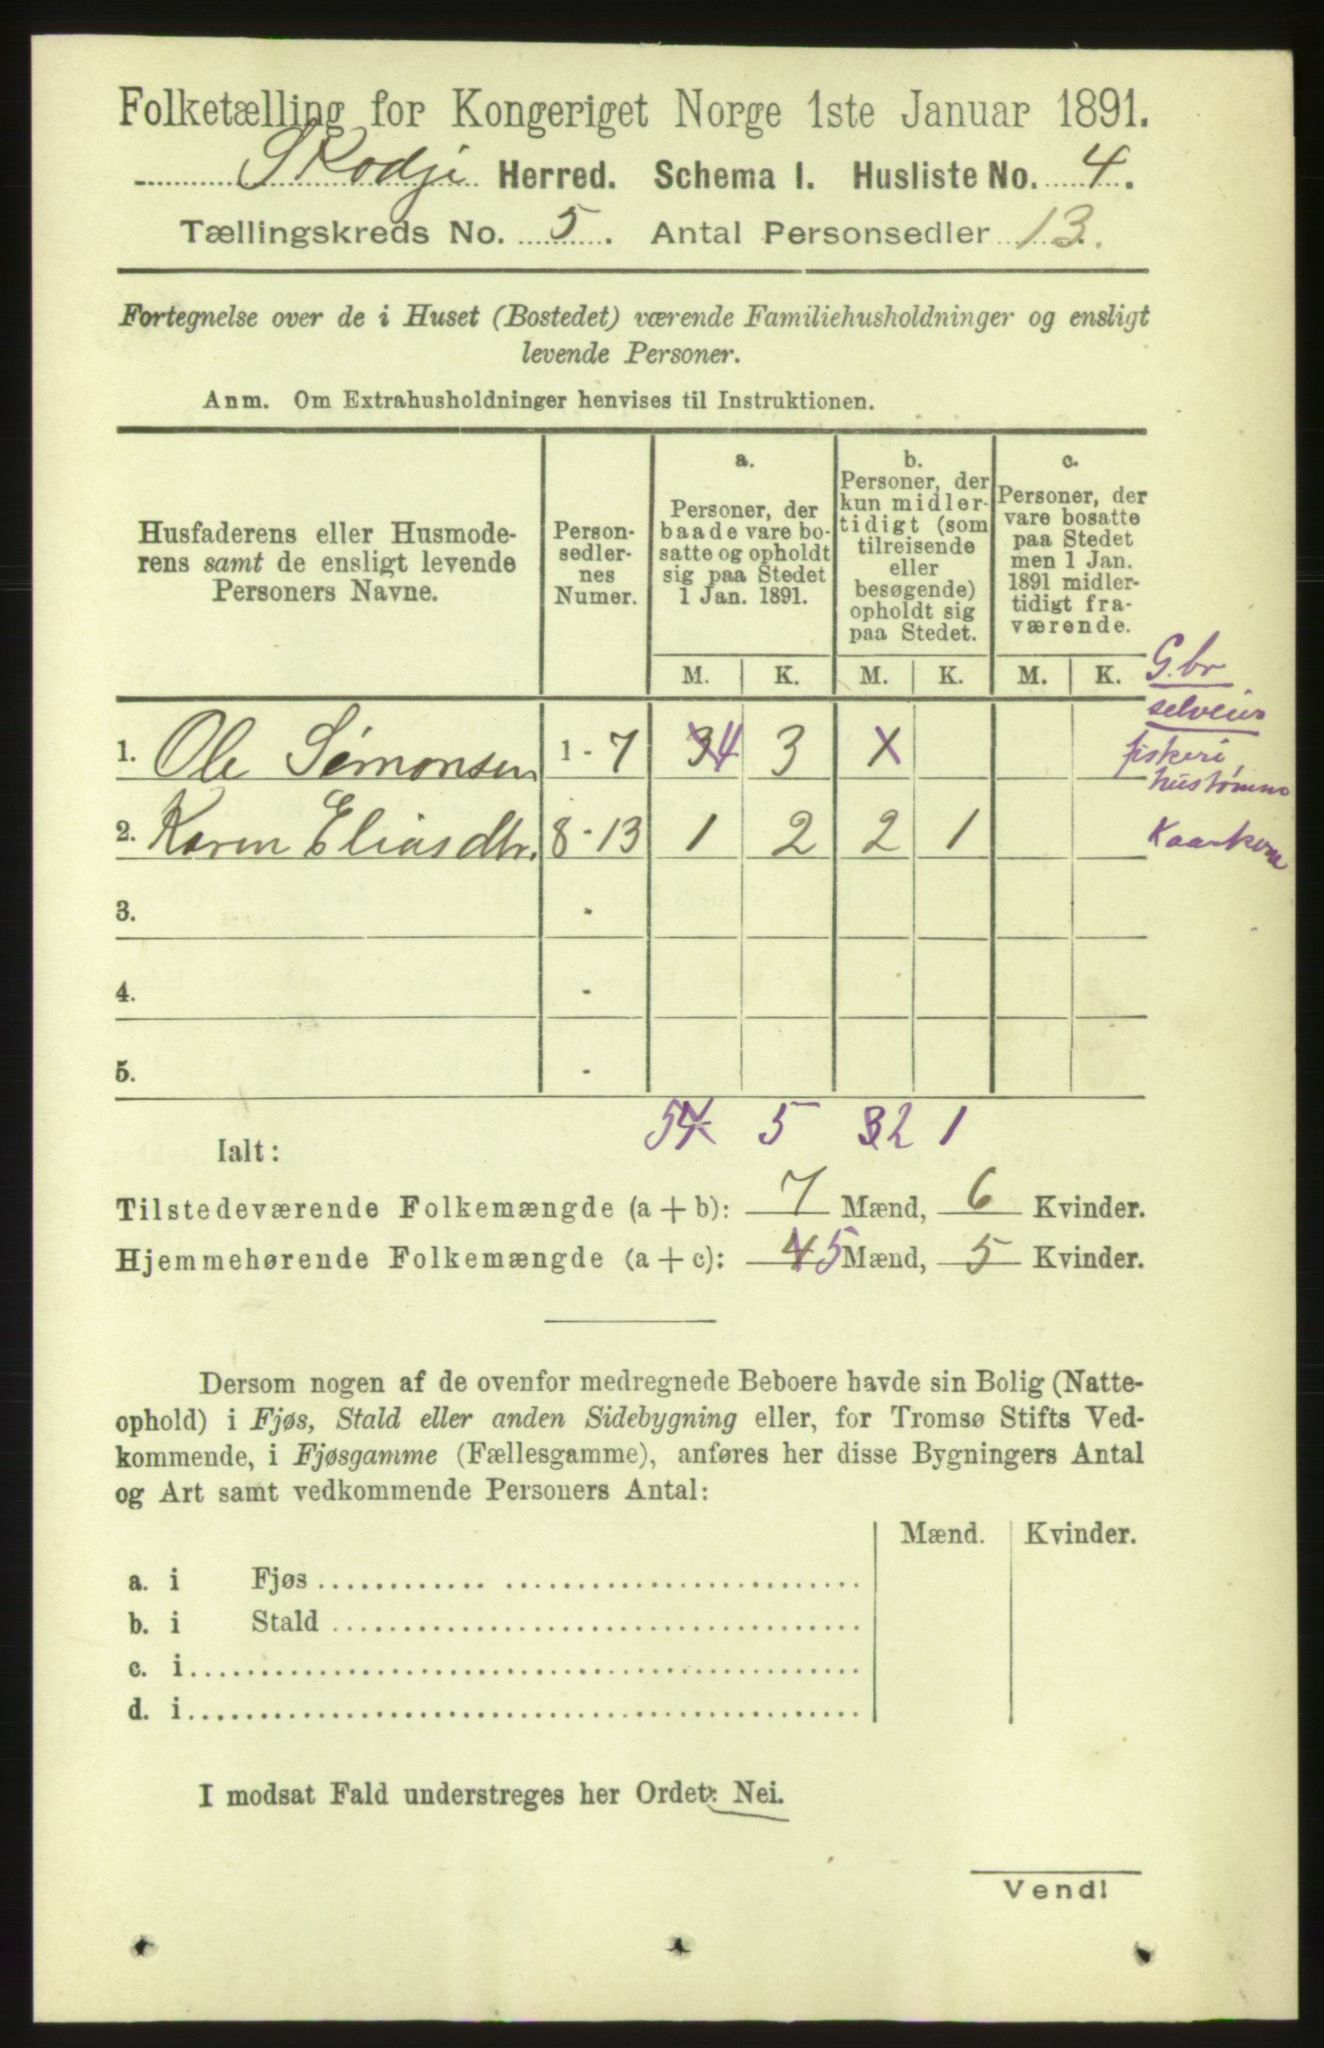 Folketælling for Kongeriget Norge 1ste Januar 1891.
Skodje Herred. Schema I. Husliste No. 4.
Tællingskreds No. 5. Antal Personsedler 13.
Fortegnelse over de i Huset (Bostedet) værende Familiehusholdninger og ensligt
levende Personer.
Anm. Om Extrahusholdninger henvises til Instruktionen.
Husfaderens eller Husmode-
rens samt de ensligt levende
Personers Navne.
Person-
sedler-
nes
Numer.
a.
Personer, der
baade vare bo-
satte og opholdt
sig paa Stedet
1 Jan. 1891.
b.
Personer, der
kun midler-
tidigt (som
tilreisende
eller
besøgende)
opholdt sig
paa Stedet.
c.
Personer, der
vare bosatte
paa Stedet
men 1 Jan.
1891 midler-
tidigt fra-
værende.
M. K. M. K. M. K.
G.br
selveier
fiskeri,
hustømm
1. Ole Simonsen 1 - 7 3 4 3 X
2. Karen Eliasdtr. 8 - 13 1 2 2 1 Kaarkone
3. -
4. -
5. -
Ialt: 5 4 5 3 2 1
Tilstedeværende Folkemængde (a + b): 7 Mænd, 6 Kvinder.
Hjemmehørende Folkemængde (a + c): 4 5 Mænd, 5 Kvinder.
Dersom nogen af de ovenfor medregnede Beboere havde sin Bolig (Natte-
ophold) i Fjøs, Stald eller anden Sidebygning eller, for Tromsø Stifts Ved-
kommende, i Fjøsgamme (Fællesgamme), anføres her disse Bygningers Antal
og Art samt vedkommende Personers Antal:
Mænd. Kvinder.
a. i Fjøs
b. i Stald
c. i
d. i
I modsat Fald understreges her Ordet: Nei.
Vend!